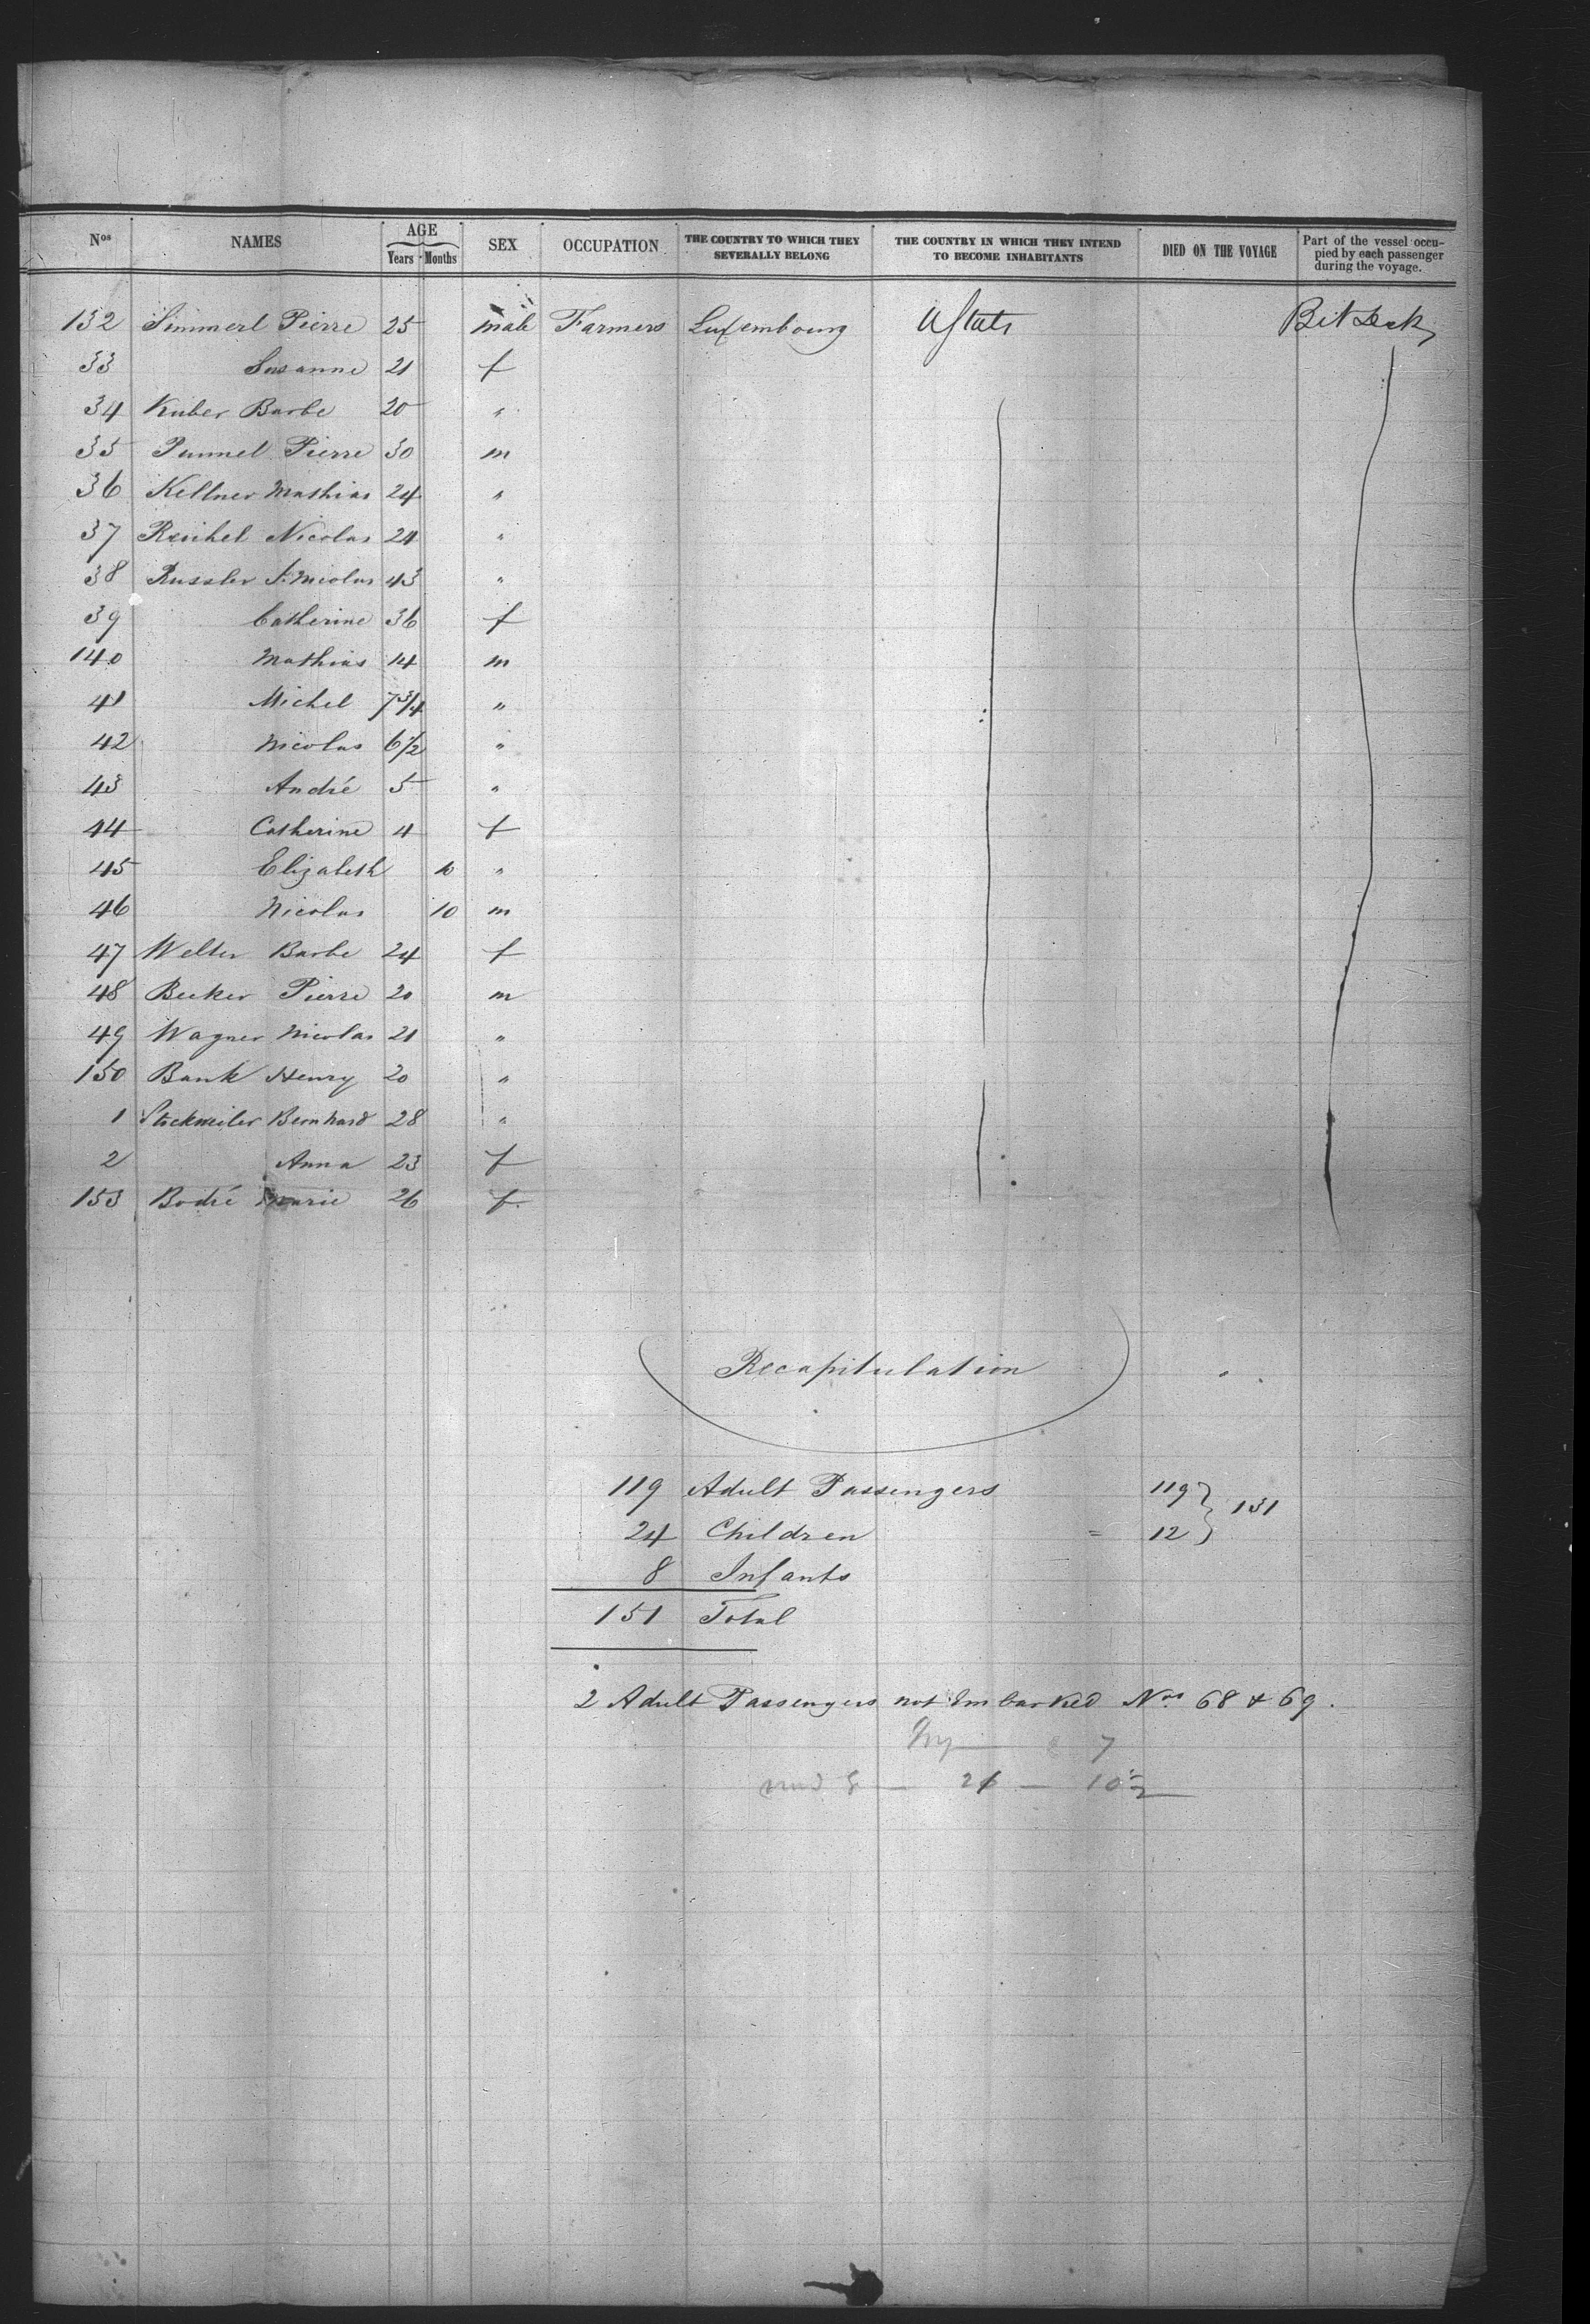 Nos NAMES AGE Years Months SEX OCCUPATION THE COUNTRY TO WHICH THEY SEVERALLY BELONG THE COUNTRY IN WHICH THEY INTEND TO BECOME INHABITANTS DIED ON THE VOYAGE Part of the vessel occupied by each passenger during the voyage.
132 Simmerl Pierre 25 male Farmers Luxembourg UStates Bet Deck
33 Susanne 21 f
34 Kuber Barbe 20 "
35 Pummel Pierre 30 m
36 Kellner Mathias 24 "
37 Reichel Nicolas 24 "
38 Russler J. Nicolas 43 "
39 Catherine 36 f
140 Mathias 14 m
41 Michel 7 3/4 "
42 Nicolas 6 1/2 "
43 André 5 "
44 Catherine 4 f
45 Elizabeth 10 "
46 Nicolas 10 m
47 Welter Barbe 24 f
48 Becker Pierre 20 m
49 Wagner Nicolas 21 "
150 Bank Henry 20 "
1 Stockweiler Bernhard 28 "
2 Anna 23 f
153 Bodié Marie 26 f.
Recapitulation
119 Adult Passengers 119 } 131
24 Children = 12
8 Infants
151 Total
2 Adult Passengers not Embarked Nos 68 & 69.
7